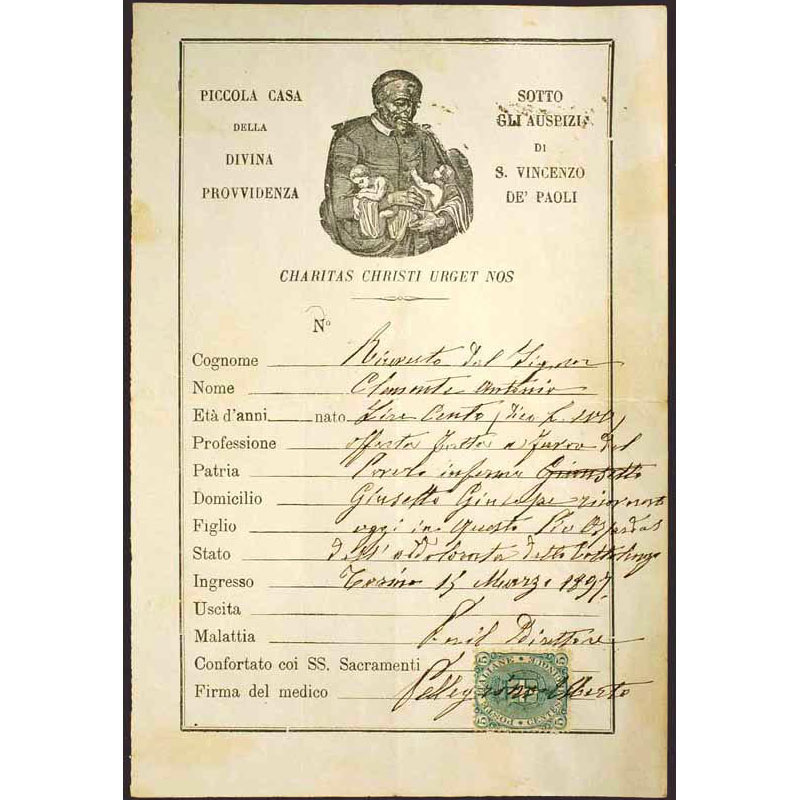 PICCOLA CASA
DELLA
DIVINA
PROVVIDENZA
SOTTO
GLI AUSPIZI
DI
S. VINCENZO
DE' PAOLI
CHARITAS CHRISTI URGET NOS
N°
Cognome Ricevuto dal Signor
Nome Clemente Antonio
Età d'anni nato Lire Cento (dico L. 100)
Professione offerta fatta a favor del
Patria Povero infermo
Domicilio Giusetto Giuseppe ricoverato
Figlio oggi in questo Pio Ospedal
Stato dell'addolorata detto Cottolengo
Ingresso Torino 15 Marzo 1897.
Uscita
Malattia Per il Direttore
Confortato coi SS. Sacramenti
Firma del medico Pellegrino Alberto